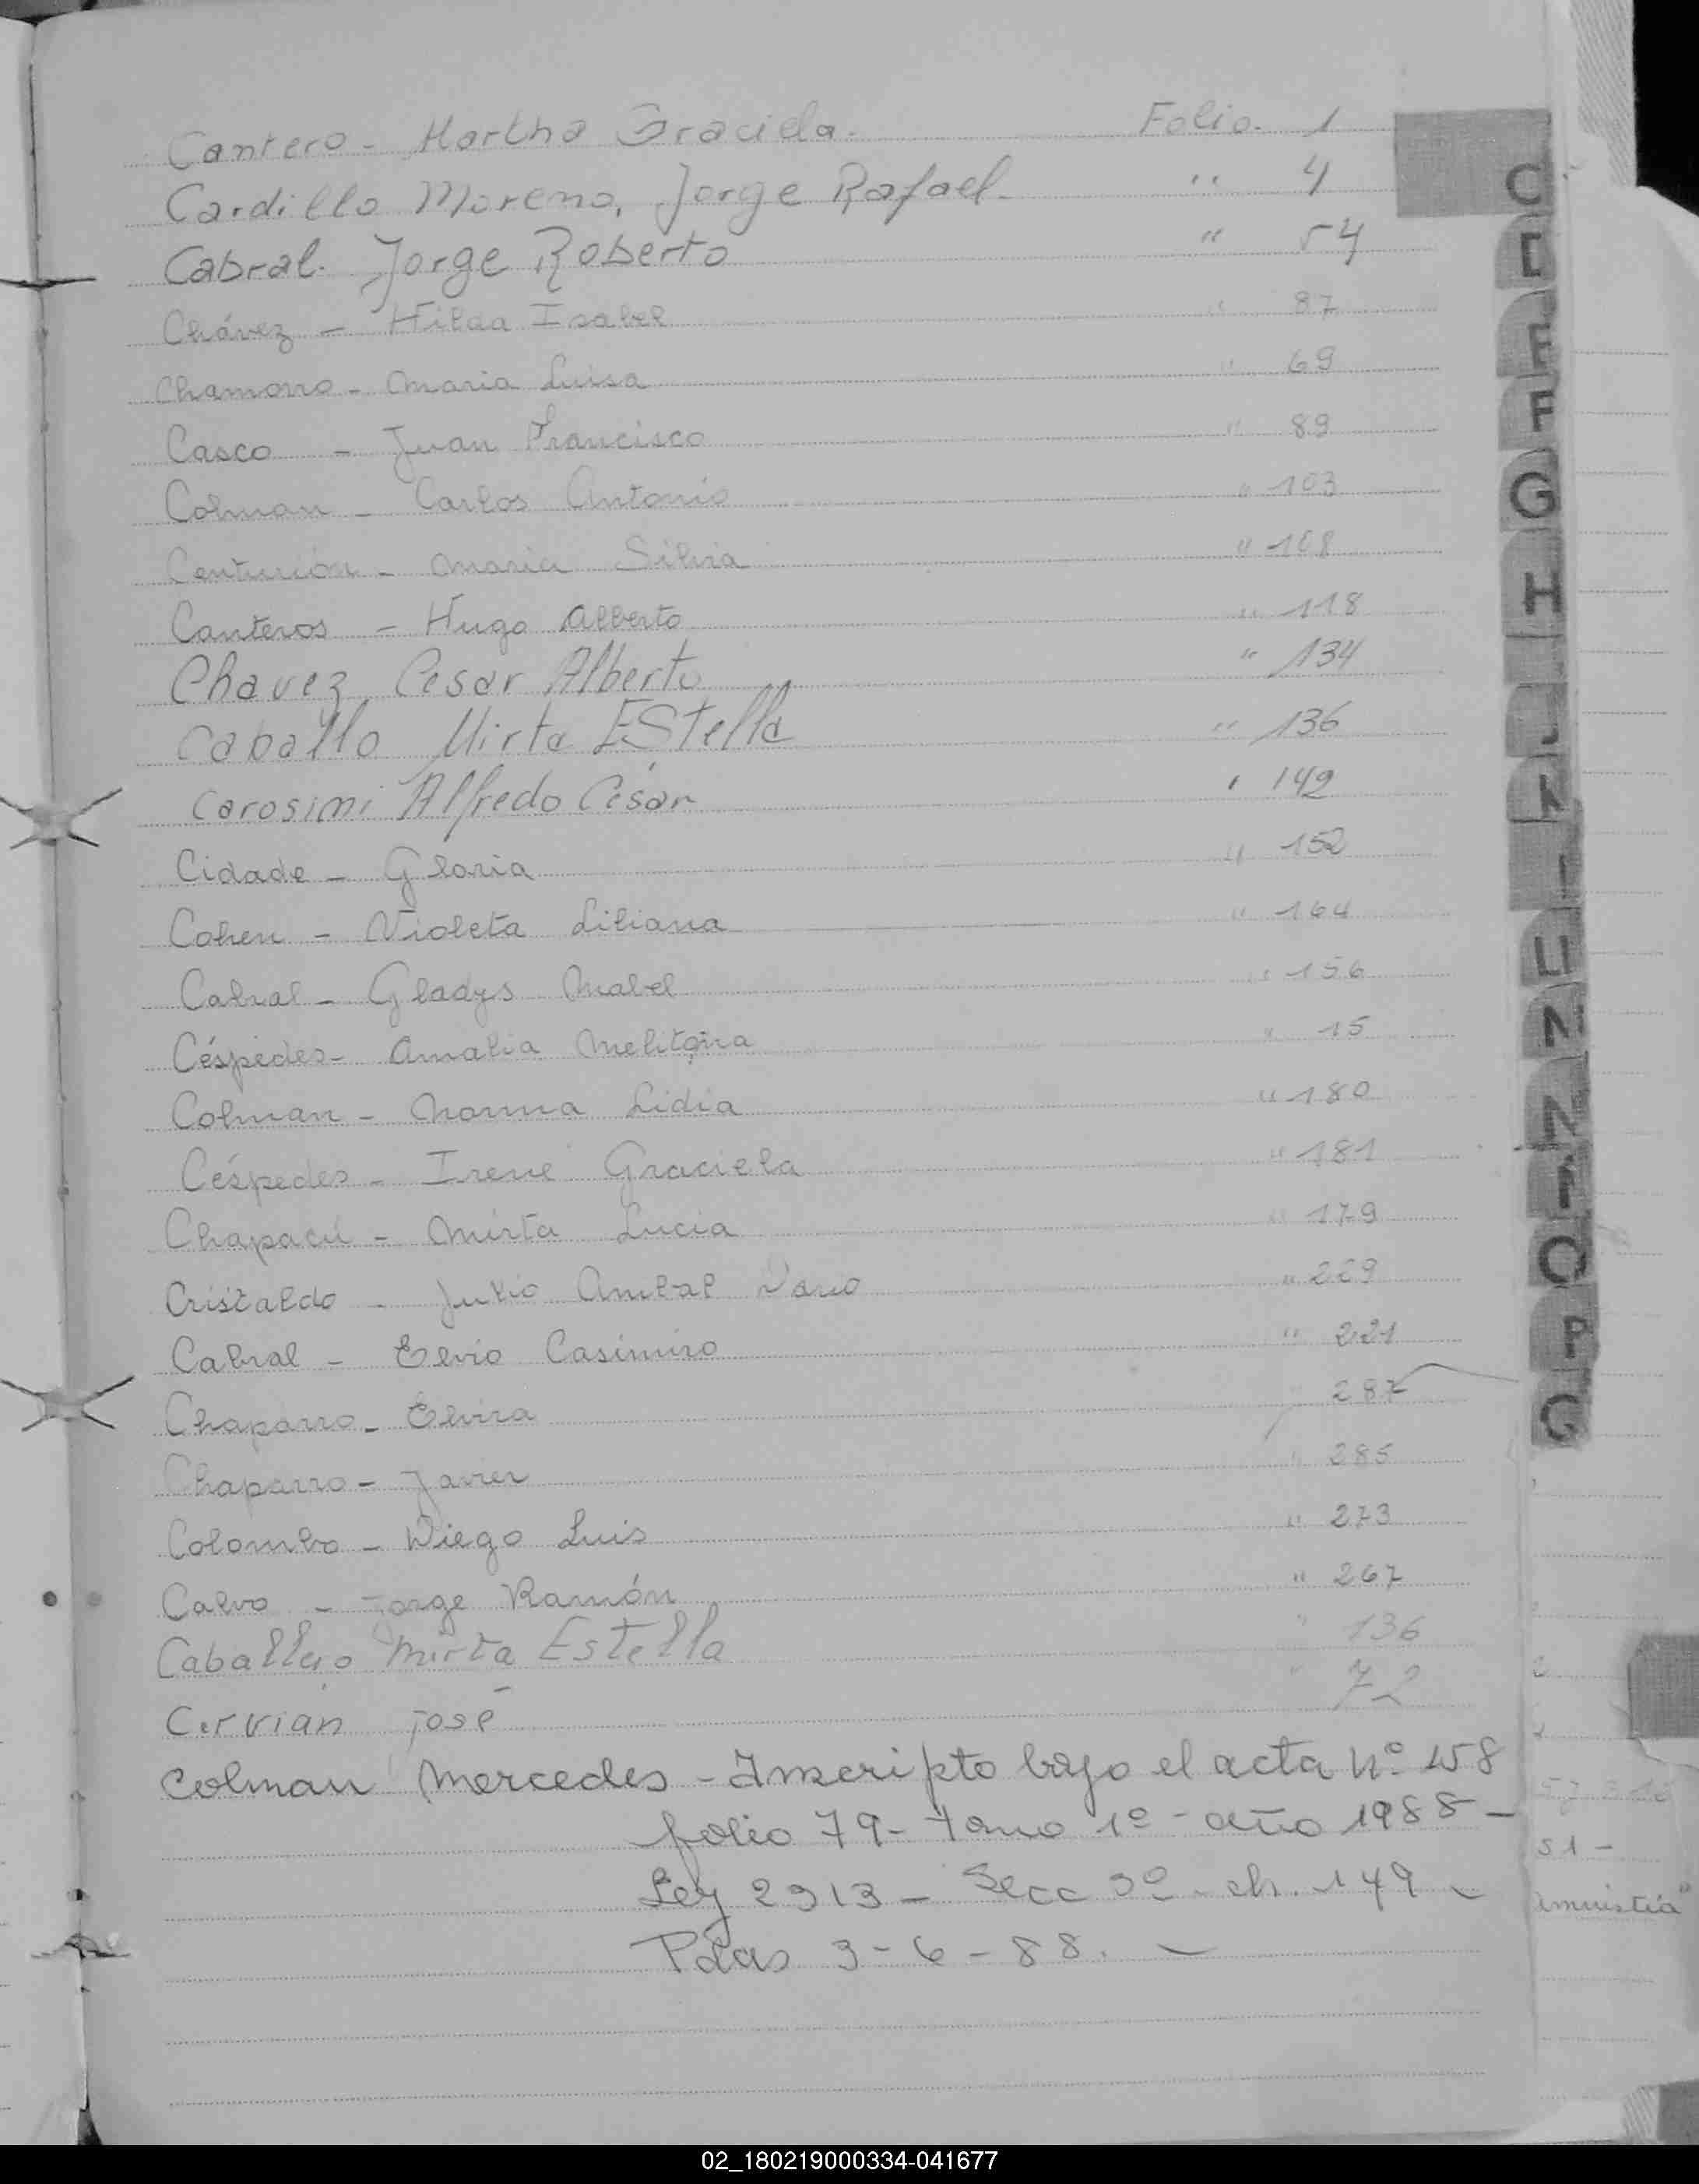 Cantero - Martha Graciela. Folio. 1
Cardillo Moreno, Jorge Rafael - " 4
Cabral. Jorge Roberto " 54
Chávez - Hilda Isabel " 87
Chamorro - Maria Luisa " 69
Casco - Juan Francisco " 89
Colman - Carlos Antonio " 103
Centurión - Maria Silvia " 108
Canteros - Hugo Alberto " 118
Chavez, Cesar Alberto " 134
Caballo Mirta EStella " 136
Carosini Alfredo César " 142
Cidade - Gloria " 152
Cohen - Violeta Liliana " 164
Cabral - Gladys Mabel " 156
Céspedes - Amalia Melitona " 15
Colman - Norma Lidia " 180
Céspedes - Irene Graciela " 181
Chapacú - Mirta Lucia " 179
Cristaldo - Julio Anibal Dario " 229
Cabral - Elvio Casimiro " 221
Chaparro - Elvira 287
Chaparro - Javier " 285
Colombo - Diego Luis " 273
Calvo - Jorge Ramón " 267
Caballero Mirta Estella " 136
Cervián José " 72
Colman Mercedes - Inscripto bajo el acta nº 158
folio 79 - tomo 1º - año 1988 -
Ley 2313 - Secc 3º - ch. 149 -
Pdas 3-6-88. -
C
E
F
G
H
J
L
N
Ñ
O
P
Q
51 -
amnistia"
02_180219000334-041677